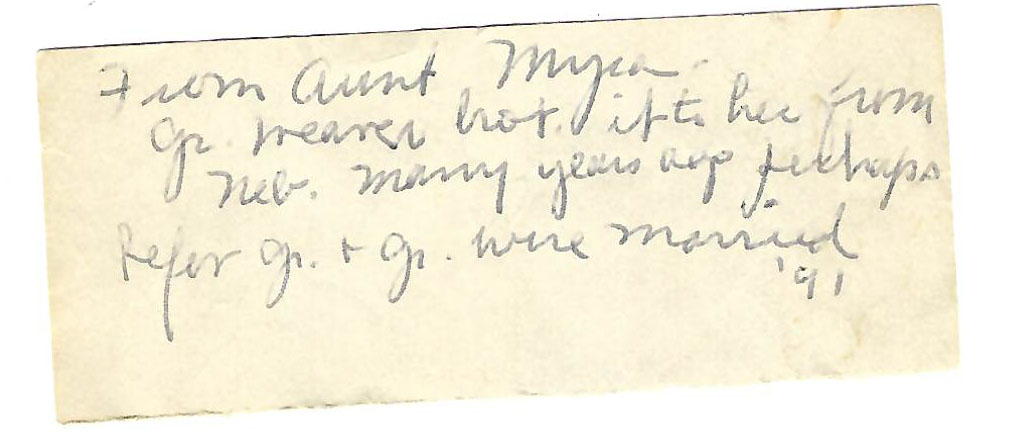 From Aunt Myra
Gr. Weaver brot. it to her from
Neb. many years ago perhaps
befor Gr. + Gr. were married
'91